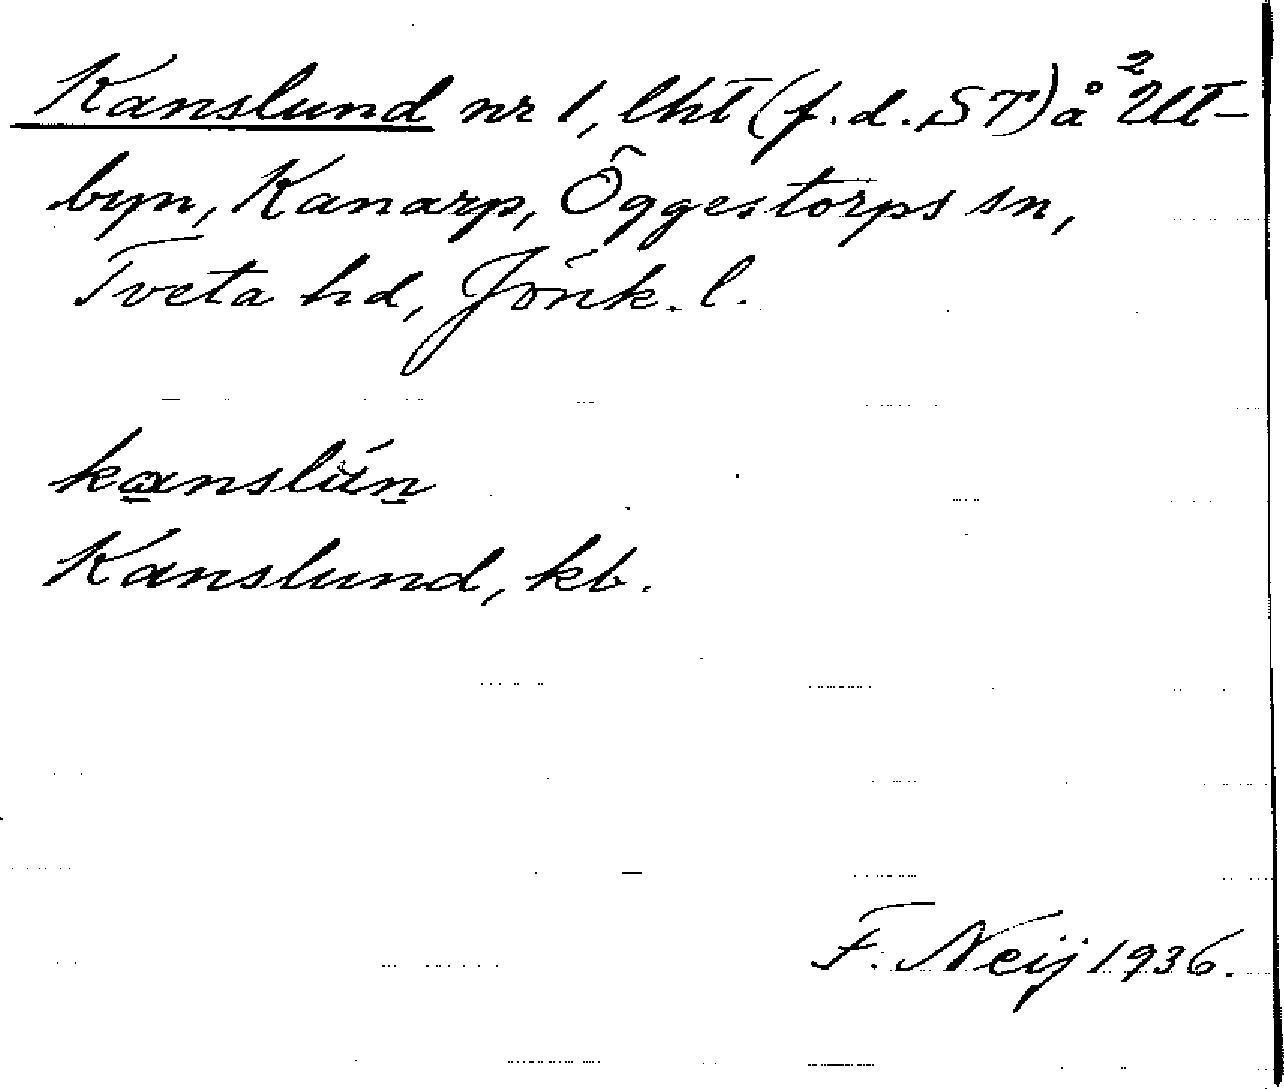 Kanslund nr 1, lht (f.d. ST) å ²Ut-
byn, Kanarp, Öggestorps sn,
Tveta hd, Jönk. l.
kanslún
Kanslund, kb.
F. Neij 1936.